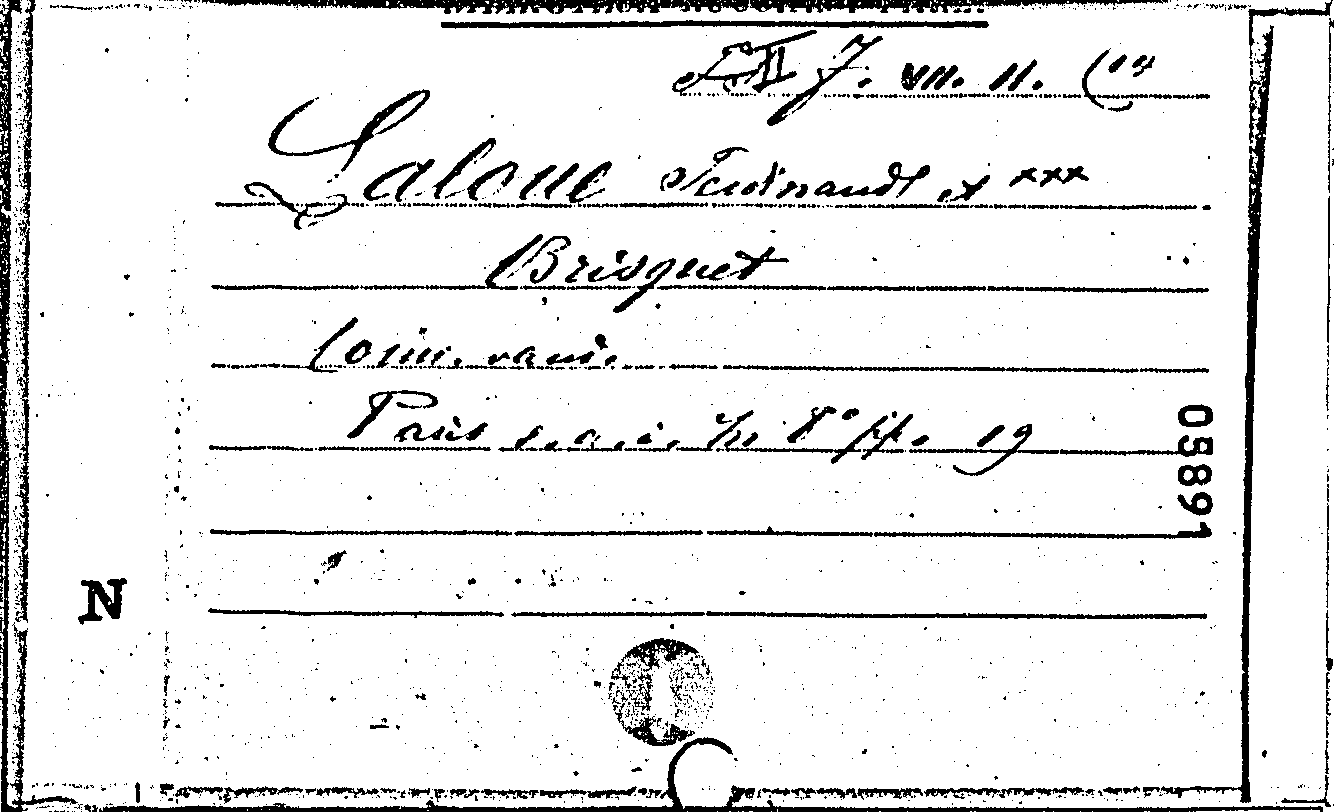 7. VII. 11. (14
Laloue Ferdinand et ***
Brisquet
Com. vaud.
Paris s. a. i. In 8° pp. 19
05891
N